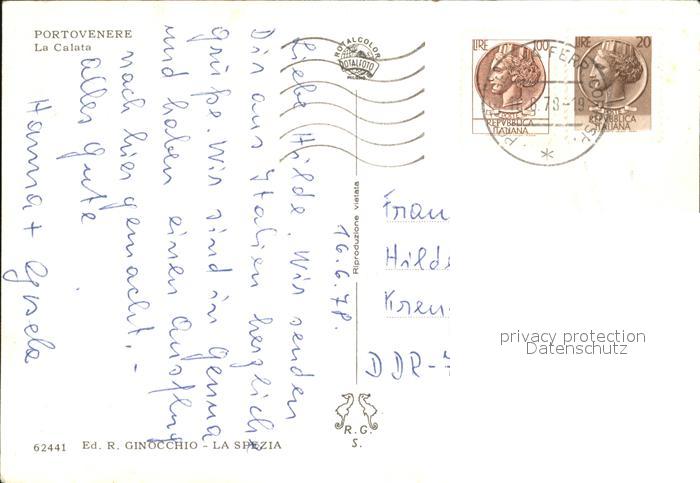 PORTOVENERE
La Calata
16.6.78.
Liebe Hilde. Wir senden
Dir aus Italien herzliche
Grüße. Wir sind in Genua
und haben einen Ausflug
nach hier gemacht. -
alles Gute
Hanna + Gisela
ROTALCOLOR
ROTALFOTO
MILANO
Riproduzione vietata
R. G.
S.
62441 Ed. R. GINOCCHIO - LA SPEZIA
LIRE 100
REPVBBLICA
ITALIANA
LIRE 20
REPVBBLICA
ITALIANA
Frau
Hilde
Kreu
DDR-7
privacy protection
Datenschutz